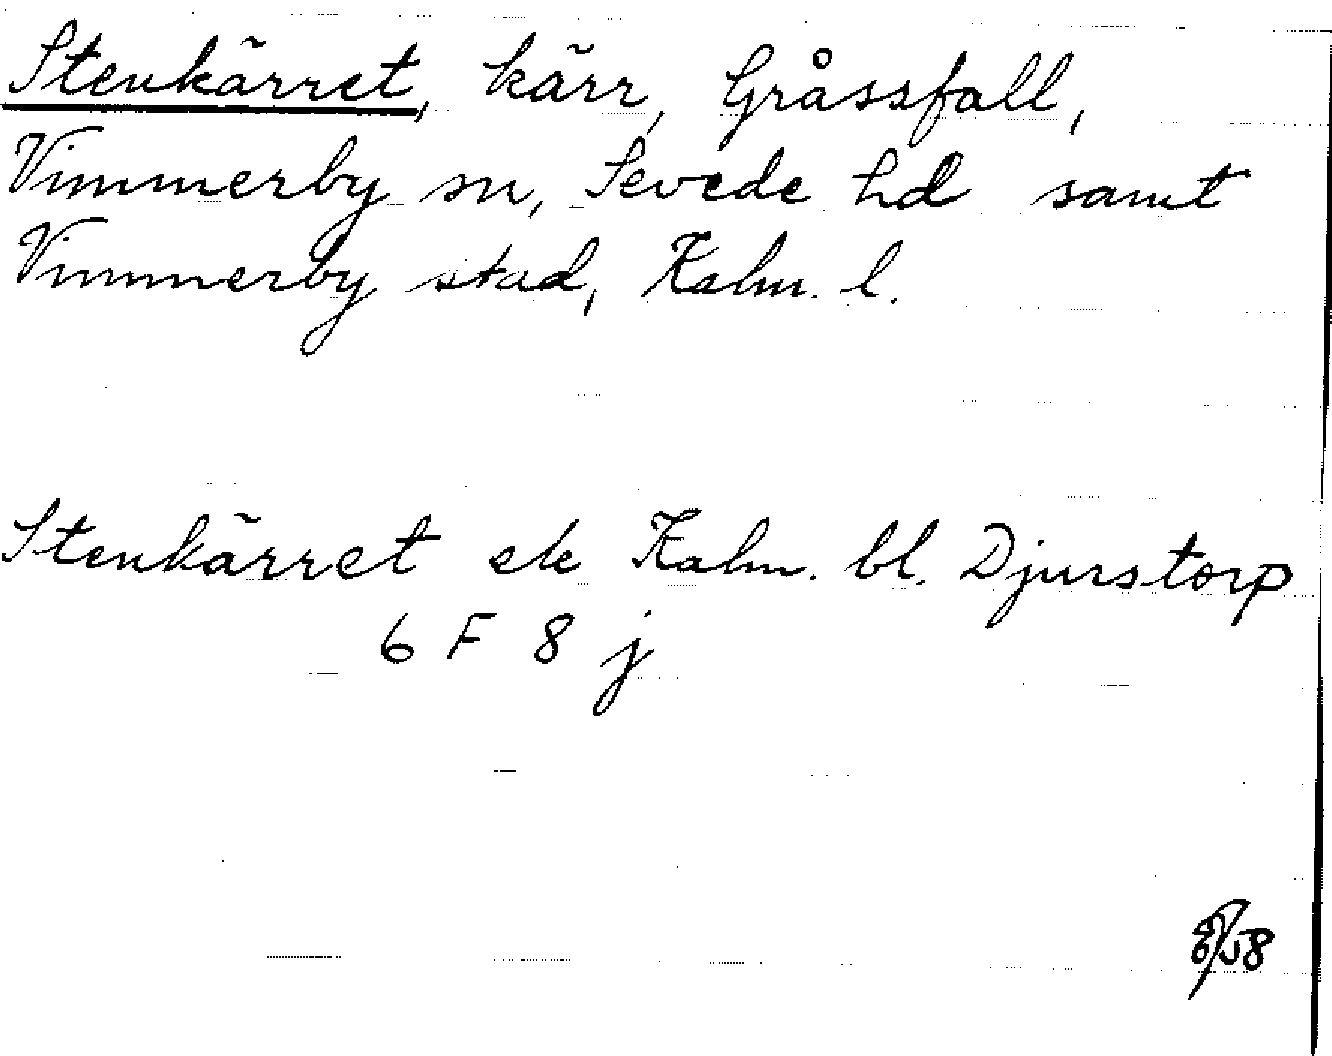 Stenkärret, kärr, Gråssfall,
Vimmerby sn, Sevede hd samt
Vimmerby stad, Kalm. l.
Stenkärret ek Kalm. bl. Djurstorp
6 F 8 j